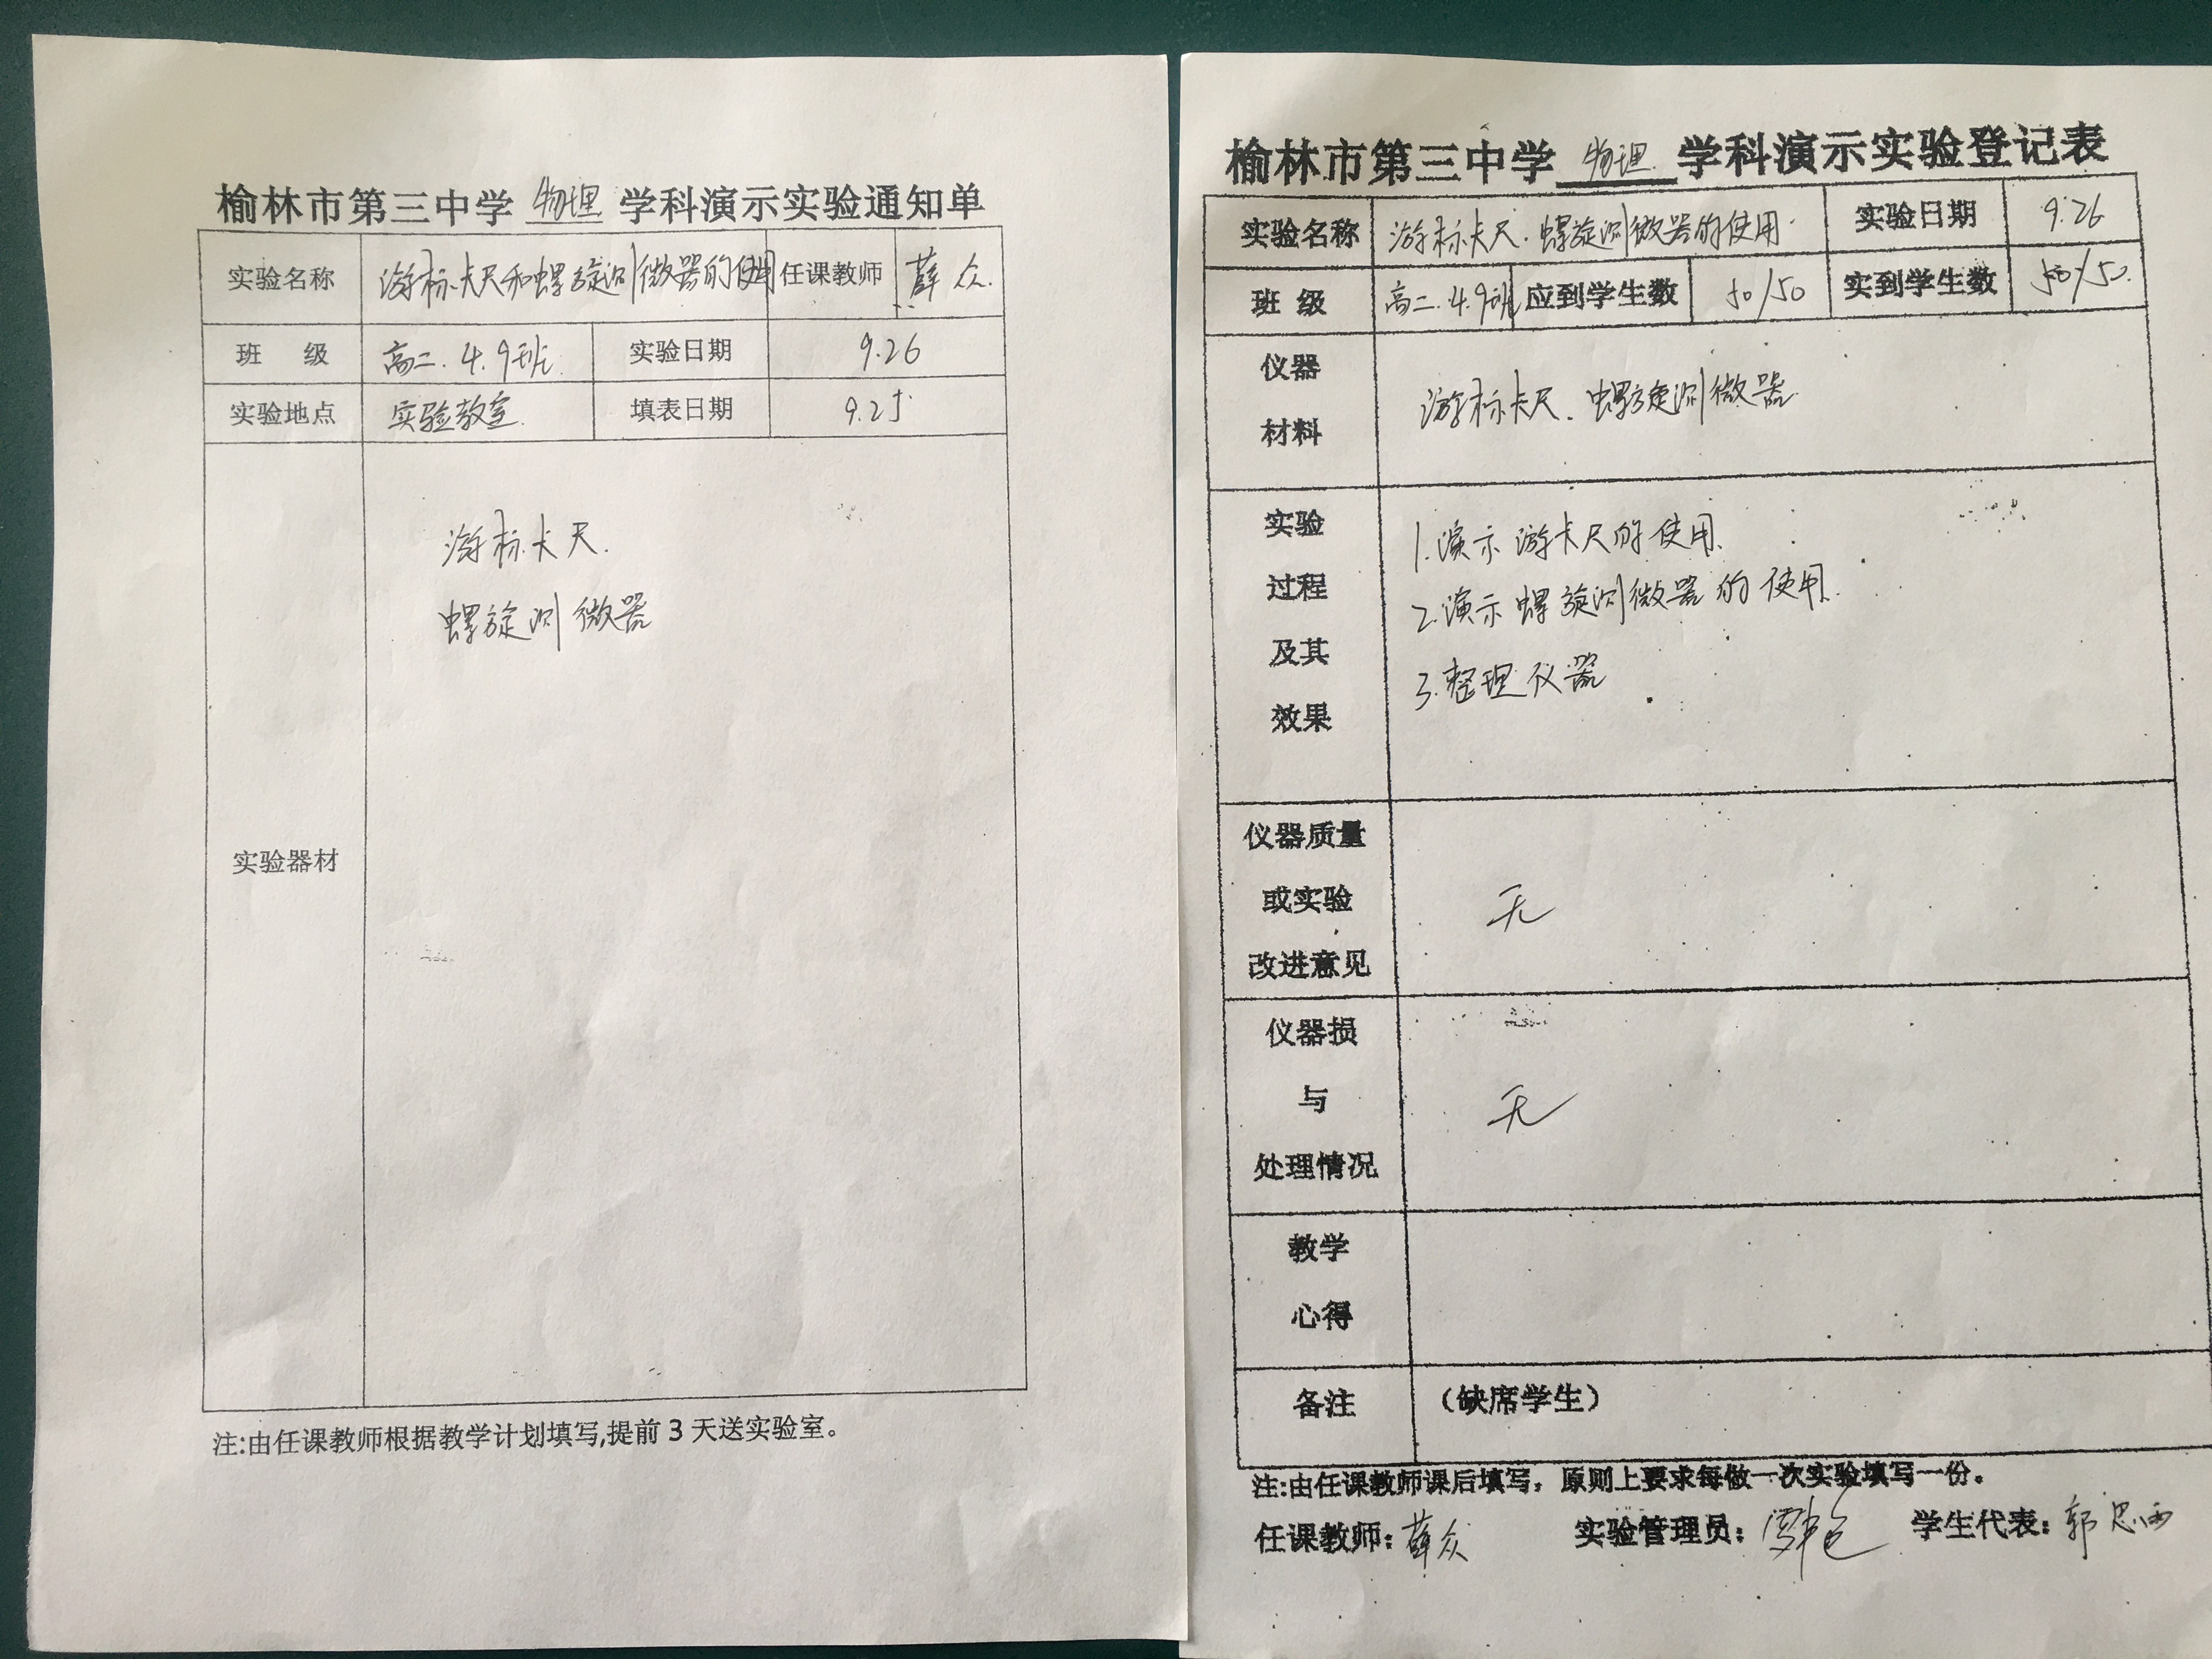 榆林市第三中学 物理 学科演示实验通知单
实验名称 游标卡尺和螺旋测微器的使用 任课教师 薛众
班 级 高二.4.9班 实验日期 9.26
实验地点 实验教室 填表日期 9.25
游标卡尺.
螺旋测微器
实验器材
注:由任课教师根据教学计划填写,提前3天送实验室。
榆林市第三中学 物理 学科演示实验登记表
实验名称 游标卡尺.螺旋测微器的使用 实验日期 9.26
班 级 高二.4.9班 应到学生数 50/50 实到学生数 50/50.
仪器
材料
游标卡尺、螺旋测微器
实验
过程
及其
效果
1.演示游卡尺的使用.
2.演示螺旋测微器的使用.
3.整理仪器
仪器质量
或实验
改进意见
无
仪器损
与
处理情况
无
教学
心得
备注 (缺席学生)
注:由任课教师课后填写,原则上要求每做一次实验填写一份。
任课教师:薛众 实验管理员: 学生代表:郭思雨